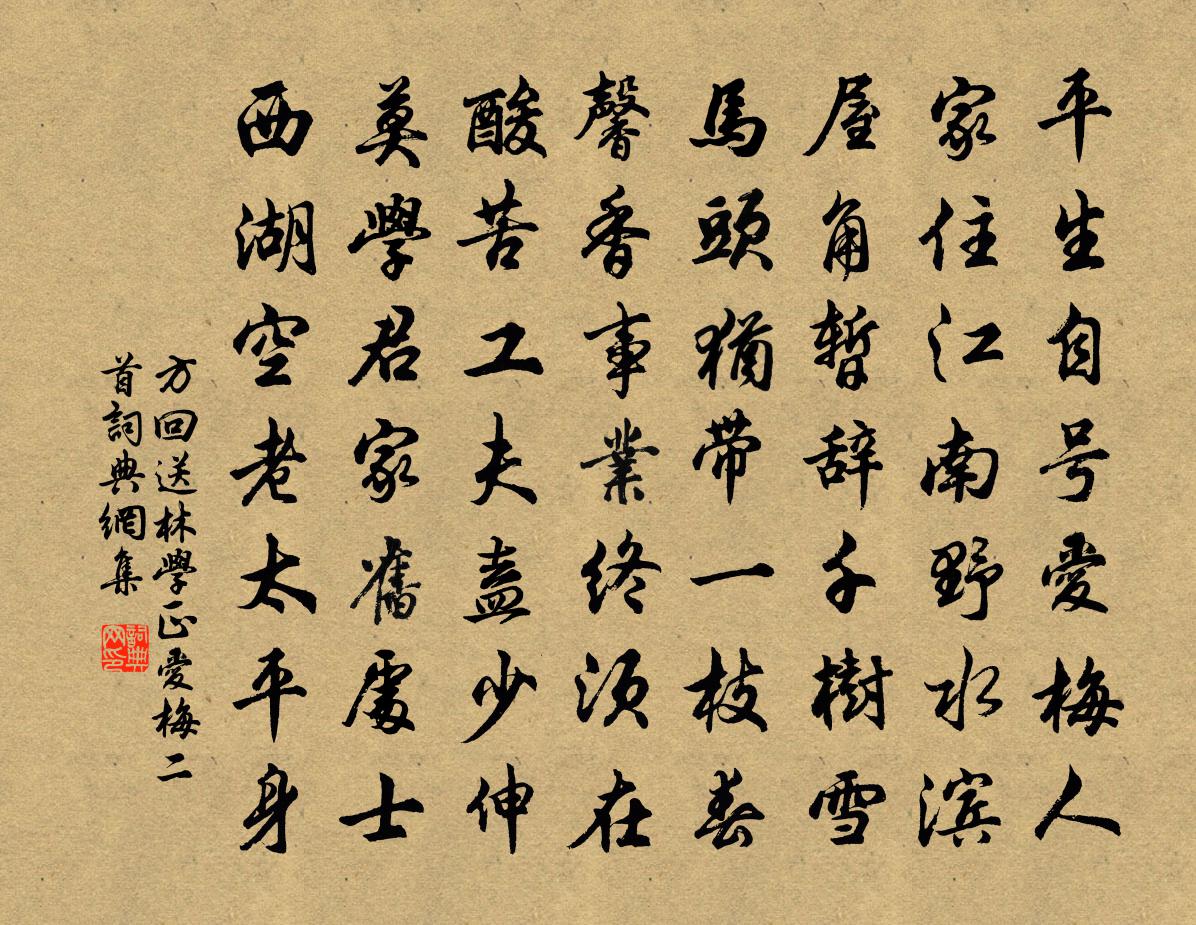 平生自号愛梅人
家住江南野水滨
屋角暫辞千樹雪
馬頭猶带一枝春
馨香事業終须在
酸苦工夫盍少伸
莫學君家舊處士
西湖空老太平身
方回送林學正愛梅二
首詞典網集
詞典
网印